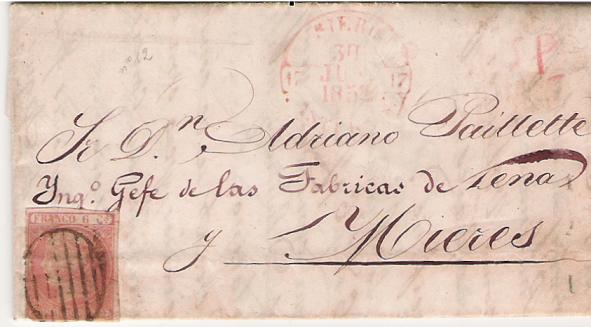 nº 12
30
17 17
1852
Sr. Dn. Adriano Paillette
Yngº. Gefe de las Fabricas de Lena
y Mieres
FRANCO 6 Cs